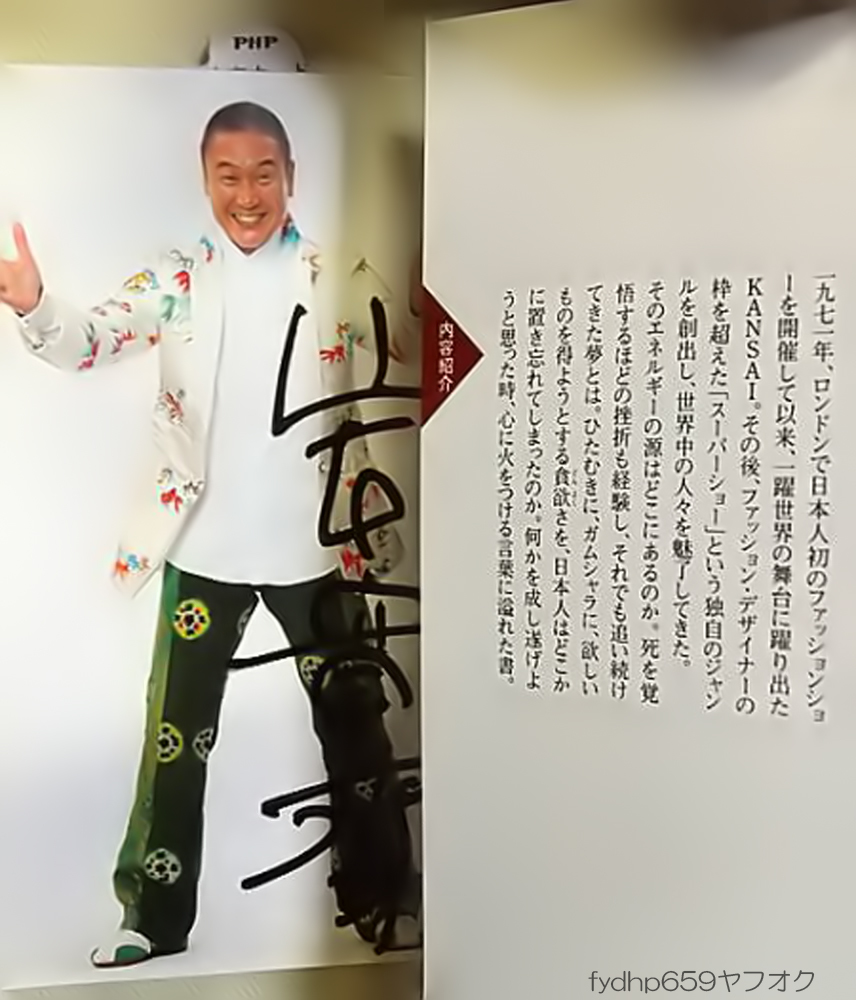 PHP
山本寛斎
内容紹介
一九七一年、ロンドンで日本人初のファッションショ
ーを開催して以来、一躍世界の舞台に躍り出た
KANSAI。その後、ファッション・デザイナーの
枠を超えた「スーパーショー」という独自のジャン
ルを創出し、世界中の人々を魅了してきた。
そのエネルギーの源はどこにあるのか。死を覚
悟するほどの挫折も経験し、それでも追い続け
てきた夢とは。ひたむきに、ガムシャラに、欲しい
ものを得ようとする貪欲さを、日本人はどこか
に置き忘れてしまったのか。何かを成し遂げよ
うと思った時、心に火をつける言葉に溢れた書。
fydhp659ヤフオク